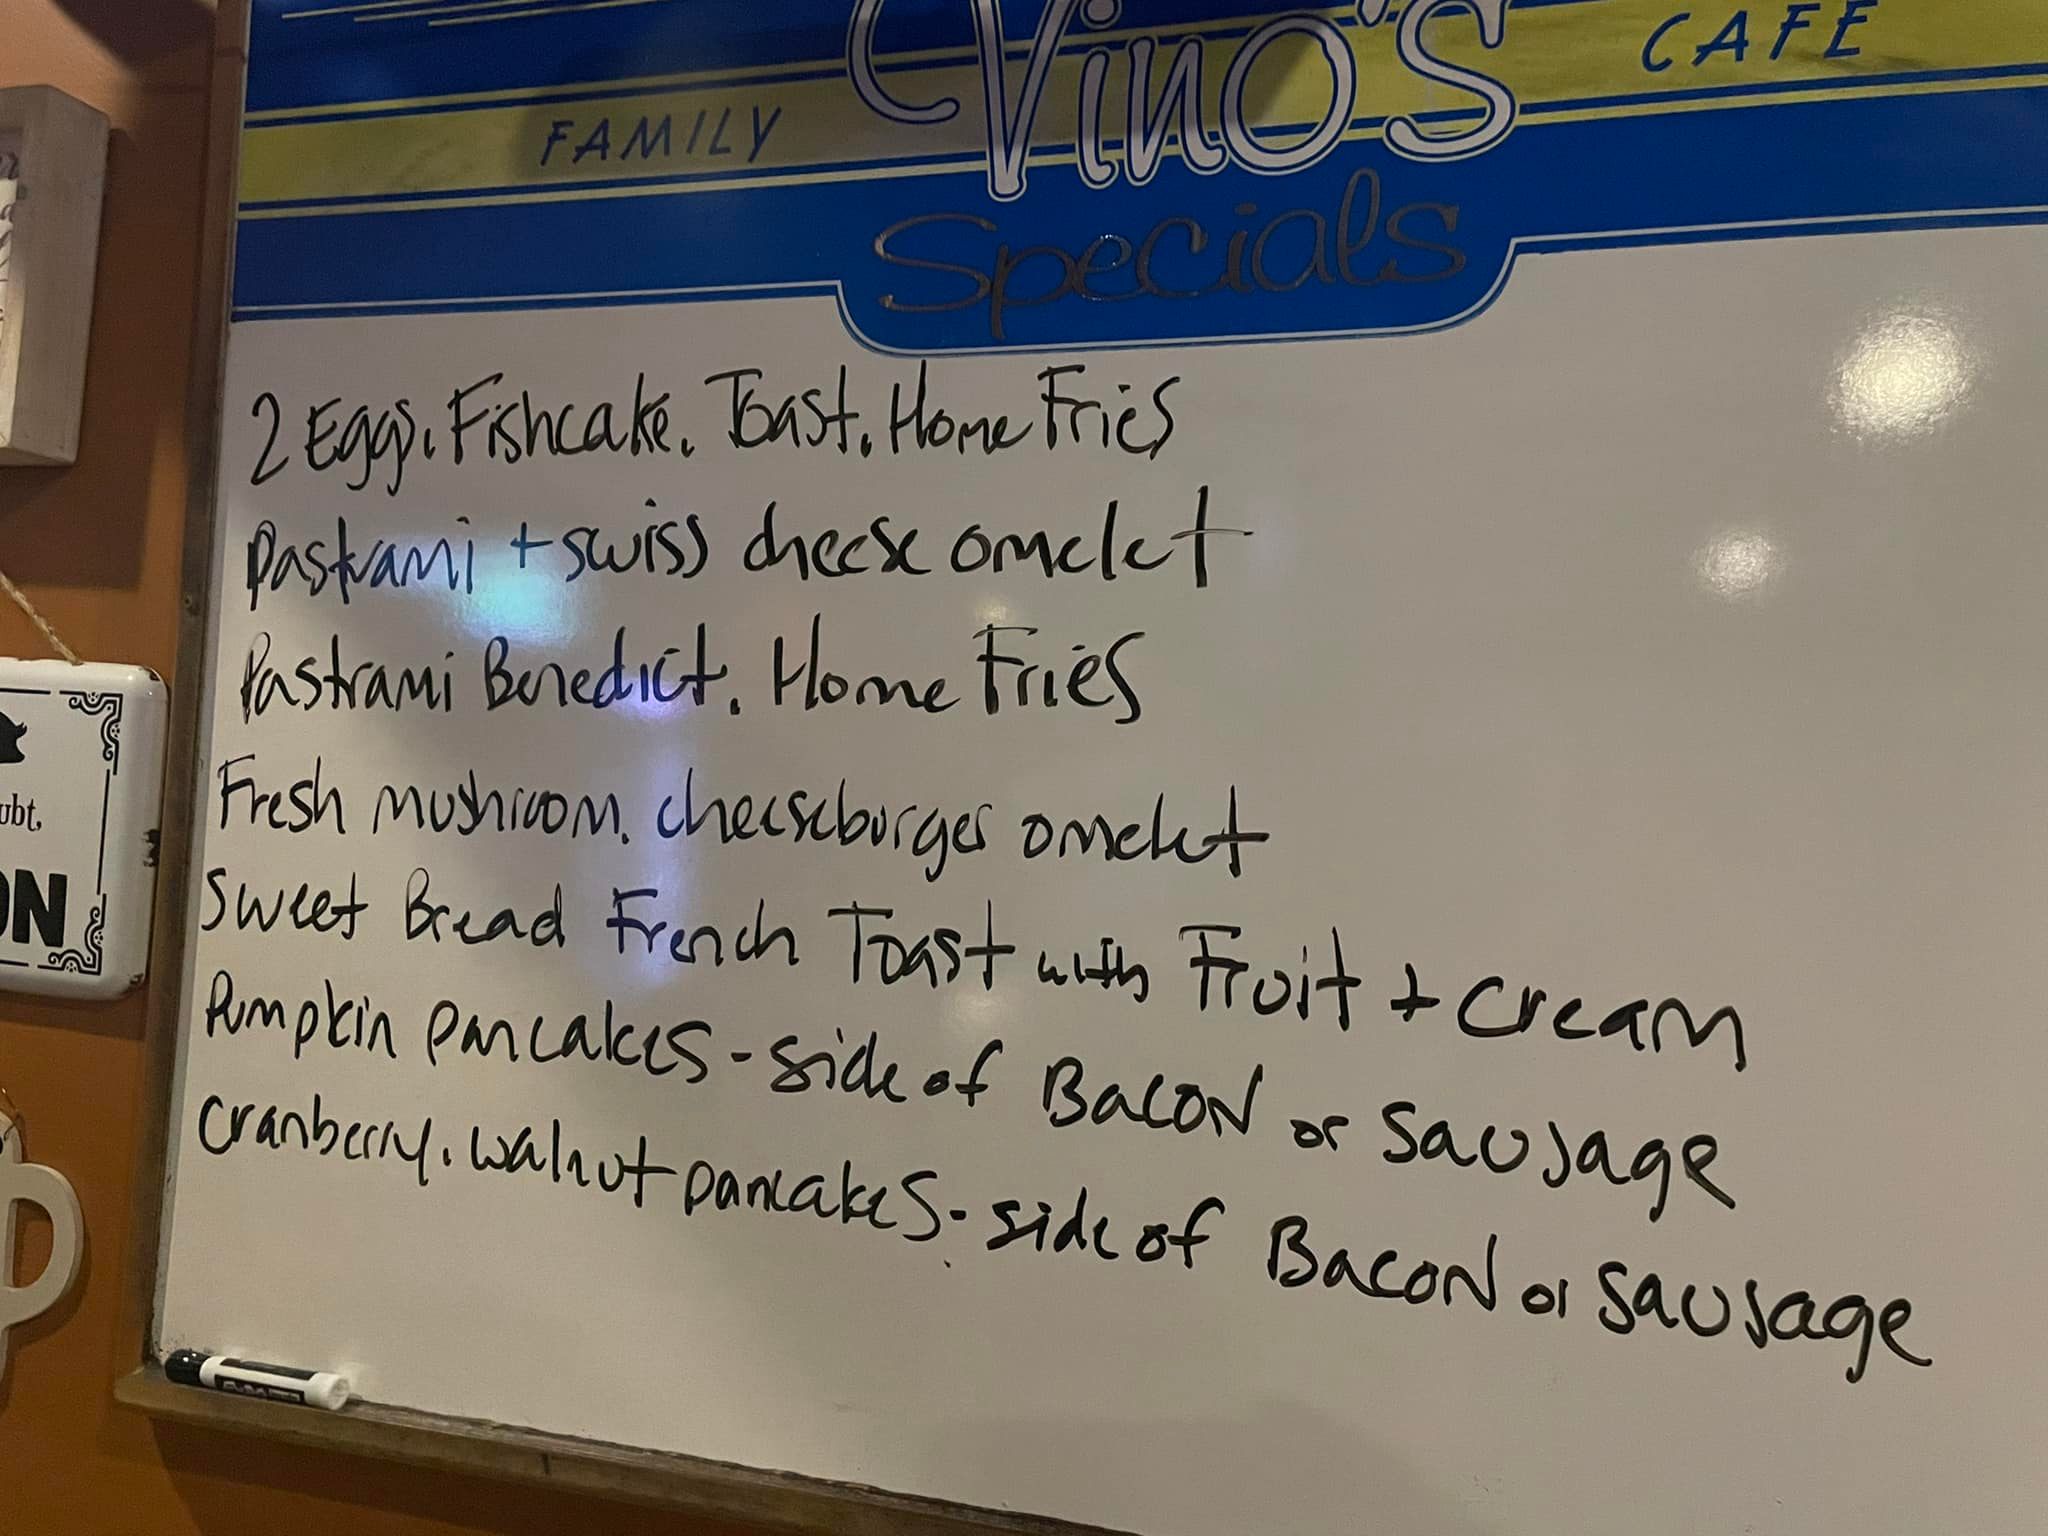 Vino's
FAMILY CAFE
Specials
2 Eggs. Fishcake. Toast. Home Fries
Pastrami + swiss cheese omelet
Pastrami Benedict. Home Fries
Fresh mushroom. cheeseburger omelet
Sweet Bread French Toast with Fruit + cream
Pumpkin pancakes - side of Bacon or Sausage
Cranberry. walnut pancakes - side of Bacon or Sausage
ubt,
ON